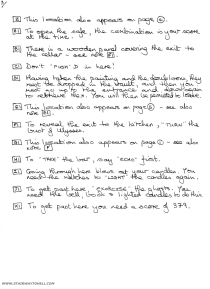 This location also appears on page
To open the safe, the combination is your score
at the time.
There is a wooden panel covering the exit to
the cellar - see note
Don't "PUSH D" in here!
Having taken the painting and the doubloons, they
need to be dropped in the vault, and then you
need to go to the entrance and
to retrieve them. You will then be permitted to leave.
This location also appears on page - see also
note
To reveal the exit to the kitchen, "TURN" the
bust of Ulysses.
This location also appears on page - see also
note
To "FREE" the bar, say "ECHO" first.
Going through here blows out your candles. You
need the matches to "LIGHT" the candles again.
To get past here "EXORCISE" the ghosts. You
need the bell, book & lighted candles to do this.
To get past here you need a score of 379.
WWW.STADIUMSTOWELL.COM